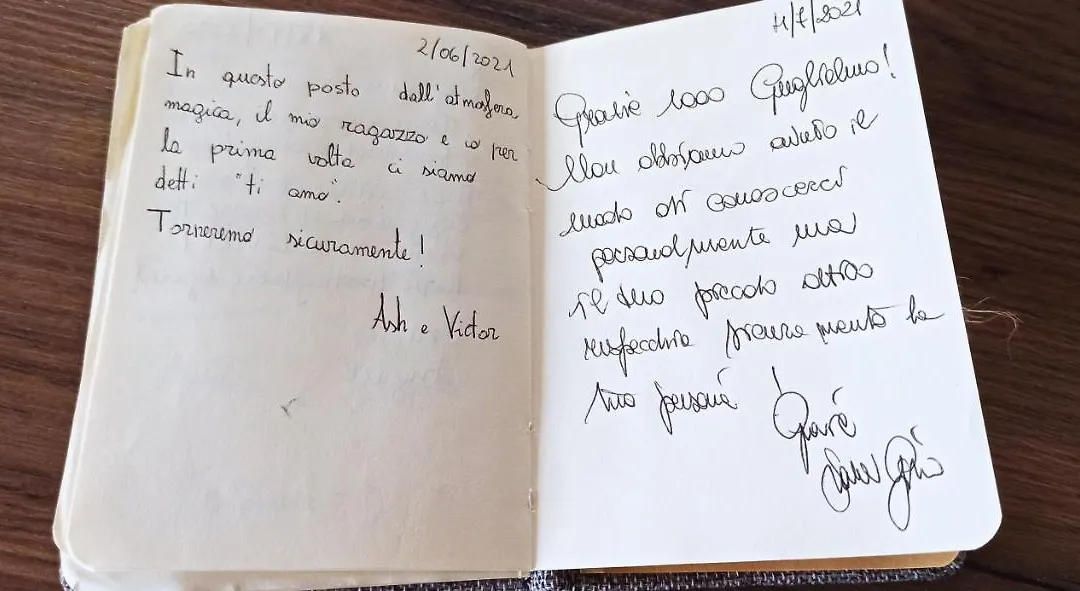 2/06/2021
In questo posto dall'atmosfera
magica, il mio ragazzo e io per
la prima volta ci siamo
detti "ti amo".
Torneremo sicuramente!
Ash e Victor
11/7/2021
Grazie 1000 Guglielmo!
Non abbiamo avuto il
modo di conoscerci
personalmente ma
il tuo piccolo
rispecchia sicuramente la
tua persona!
Grazie